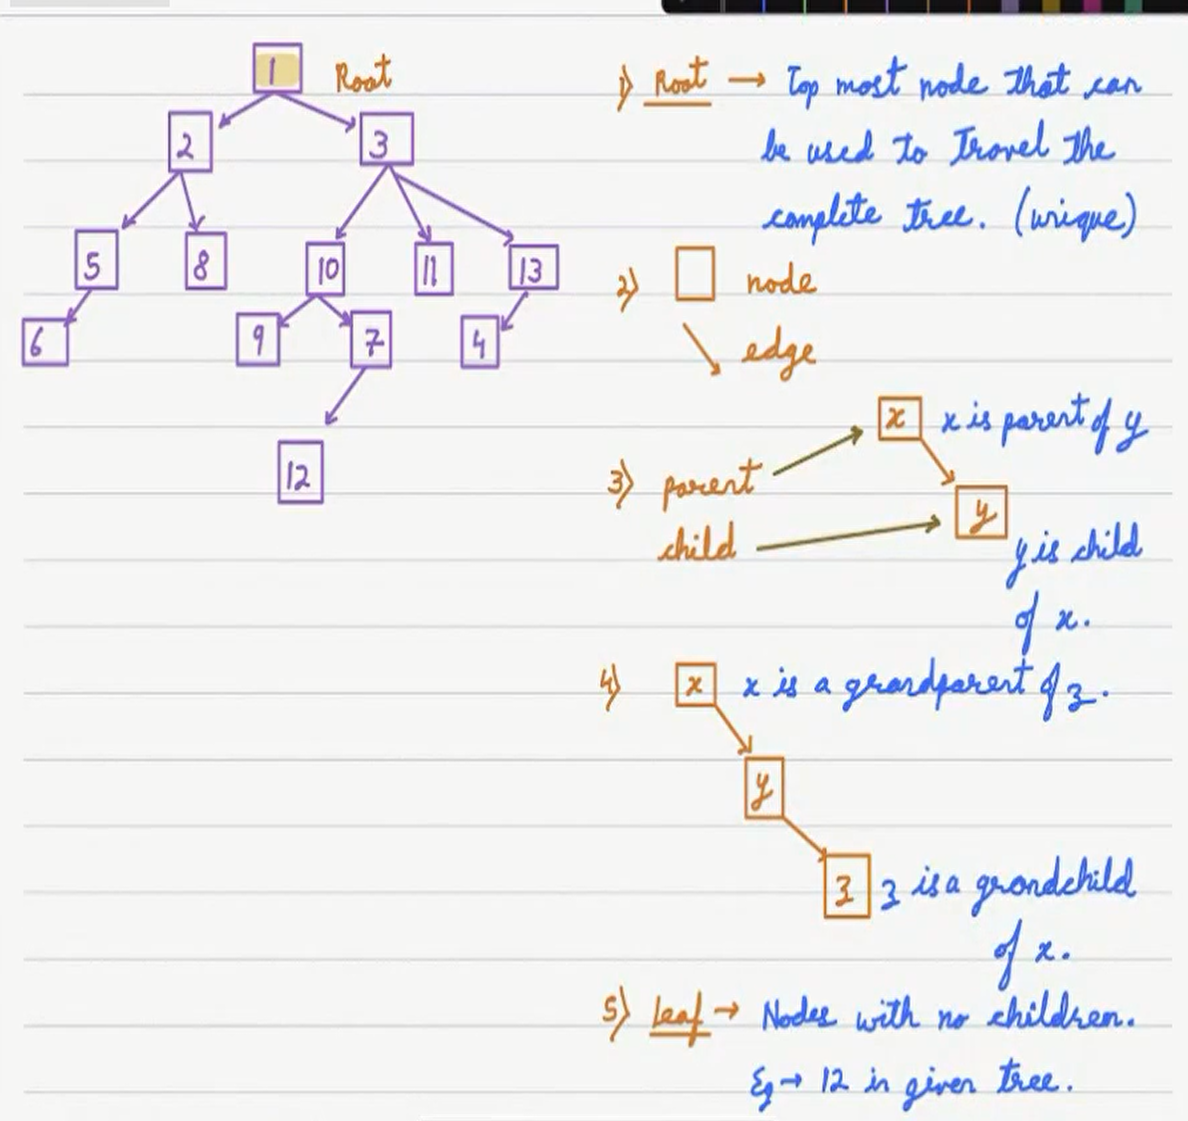 1 Root
2 3
5 8 10 11 13
6 9 7 4
12
1) Root → Top most node that can
be used to travel the
complete tree. (unique)
2) node
edge
x x is parent of y
3) parent
y
child
y is child
of x.
4) x x is a grandparent of z.
y
z z is a grandchild
of x.
5) Leaf → Nodes with no children.
Eg → 12 in given tree.